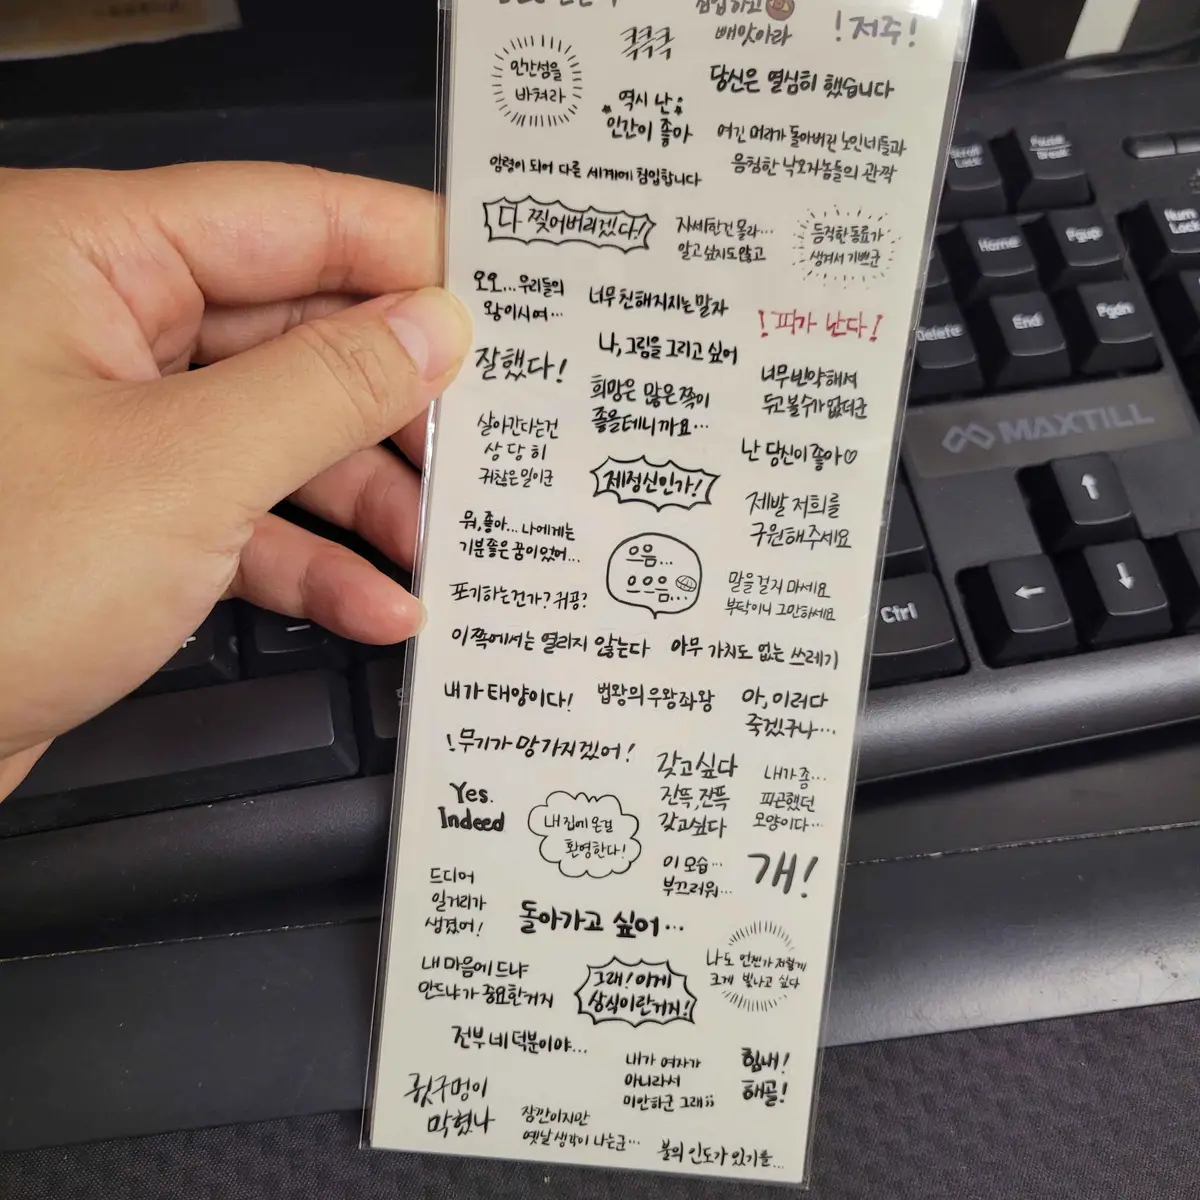 침입하고
빼앗아라
! 저주!
큭큭큭
인간성을
바쳐라
당신은 열심히 했습니다
역시 난
인간이 좋아
여긴 머리가 돌아버린 노인네들과
음침한 낙오자놈들의 관짝
암령이 되어 다른 세계에 침입합니다
다 찢어버리겠다!
자세한건 몰라...
알고싶지도않고
듬직한 동료가
생겨서 기쁘군
오오... 우리들의
왕이시여...
너무 친해지지는 말자
! 피가 난다!
나, 그림을 그리고 싶어
잘했다!
희망은 많은 쪽이
좋을테니까요...
너무빈약해서
두고볼수가없더군
살아간다는건
상당히
귀찮은 일이군
난 당신이 좋아♡
제정신인가!
제발 저희를
구원해주세요
뭐, 좋아... 나에게는
기분좋은 꿈이었어...
으음...
으으음...
말을 걸지 마세요
부탁이니 그만하세요
포기하는건가? 귀공?
이쪽에서는 열리지 않는다
아무 가치도 없는 쓰레기
내가 태양이다!
법왕의 우왕좌왕
아, 이러다
죽겠구나...
! 무기가 망가지겠어!
갖고싶다
잔뜩, 잔뜩
갖고싶다
내가 좀...
피곤했던
모양이다...
Yes.
Indeed
내 집에 온걸
환영한다!
이 모습...
부끄러워...
개!
드디어
일거리가
생겼어!
돌아가고 싶어...
나도 언젠가 저렇게
크게 빛나고 싶다
내 마음에 드냐
안드냐가 중요한거지
그래! 이게
상식이란거지!
전부 네 덕분이야...
내가 여자가
아니라서
미안하군 그래;;
힘내!
해골!
쥣구멍이
막혔나
잠깐이지만
옛날 생각이 나는군...
불의 인도가 있기를...
MAXTILL
Scroll
Lock
Pause
Break
Num
Lock
Home
Pgup
Delete
End
Pgdn
Ctrl